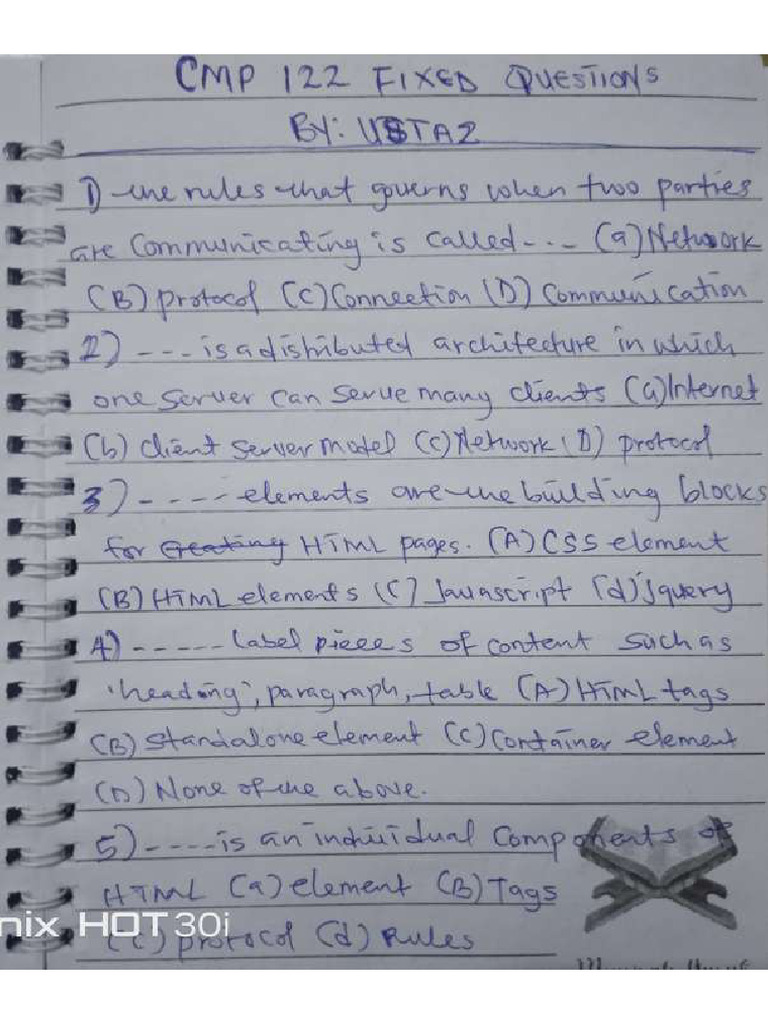 CMP 122 FIXED QUESTIONS
BY: USTAZ
1) the rules that governs when two parties
are communicating is called--- (a) Network
(B) protocol (C) Connection (D) Communication
2) --- is a distributed architecture in which
one server can serve many clients (a) Internet
(b) client server model (c) Network (D) protocol
3) ---- elements are the building blocks
for creating HTML pages. (A) CSS element
(B) HTML elements (C) Javascript (d) jquery
4) ----- Label pieces of content such as
'heading', paragraph, table (A) HTML tags
(B) standalone element (C) Container element
(D) None of the above.
5) ---- is an individual Components of
HTML (a) element (B) Tags
nix HOT 30i
(C) protocol (d) Rules